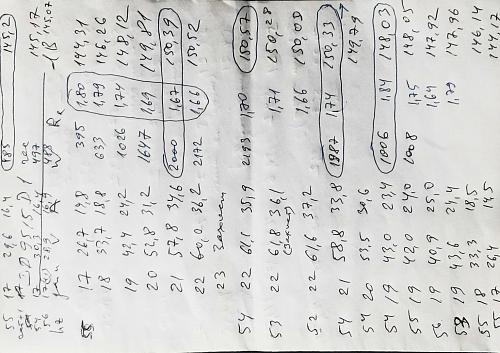 55 17 29,6 16,4 185 145,2
55 17 26,7 19,8 395 1,80 144,31
18 33,7 18,8 633 1,79 146,26
19 42,4 24,2 1026 1,74 148,12
20 52,8 31,2 1647 1,69 149,81
21 57,8 34,6 2000 1,67 150,39
22 60,0 36,2 2172 1,66 150,52
23
54 22 61,1 35,9 2193 1,70 150,57
53 22 61,8 36,1 1,71 150,28
52 22 61,6 37,2 1,66 150,00
54 21 58,8 33,8 1987 1,74 150,33
54 20 53,5 30,6 149,79
54 19 43,0 23,4 1006 1,84 148,03
55 19 42,0 24,0 1008 1,75 148,05
56 19 40,9 25,0 1,64 147,92
53 19 43,6 24,4 1,79 147,96
55 18 33,3 18,5 146,14
55 17 26,4 14,5